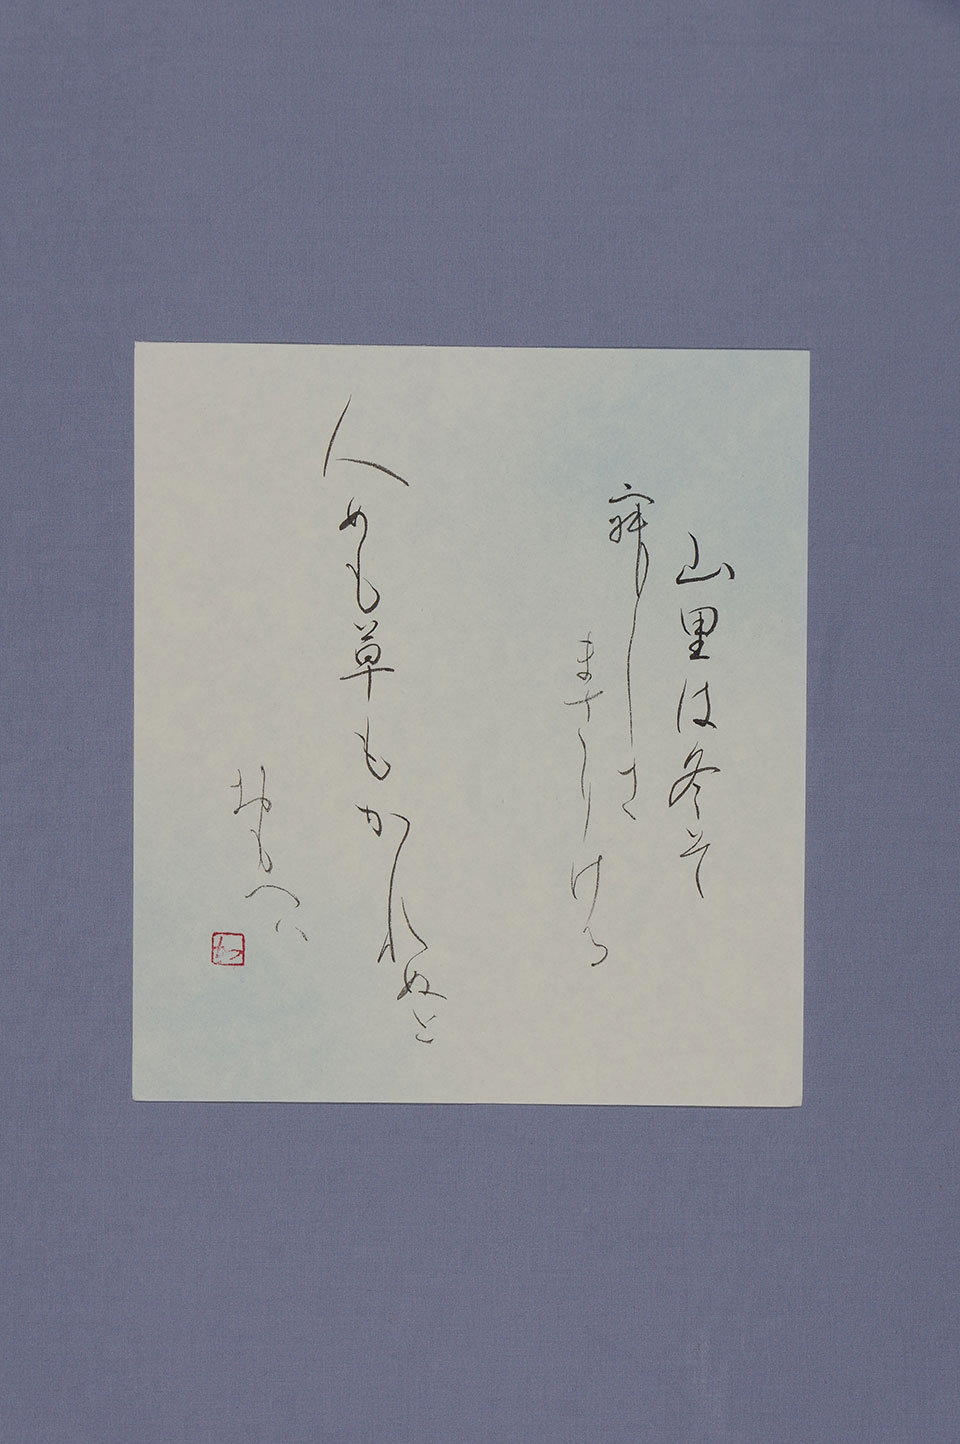 山里は冬そ
寂しさ
まさりける
人めも草もかれぬと
おもへハ